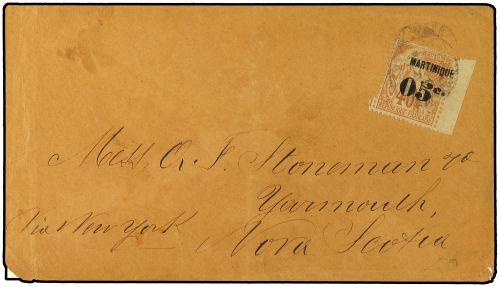 MARTINIQUE
05c.
40
Mess. A. F. Stoneman & Co
Yarmouth,
Via New York
Nova Scotia